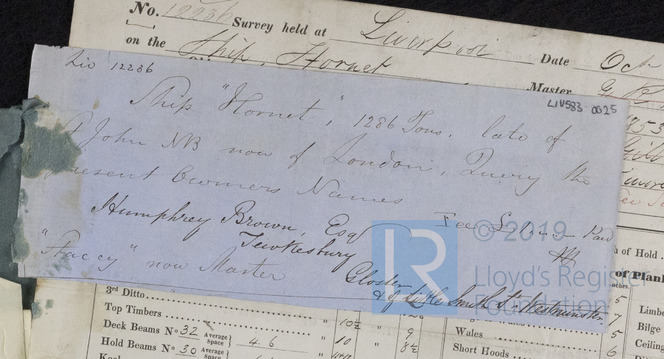 No. 12236 Survey held at Liverpool Date Oct
on the Ship, Hornet Master G.
Liv 12236
LIV583 0025
Ship "Hornet", 1286 Tons, late of
St John NB now of London, Query the
Present Owners Names
Humphrey Brown, Esq
Tewkesbury
Gloster
& of Little Smith St Westminster
"Facey" now Master
© 2019
LR
Lloyd's Register
Foundation
of Hold
of Plank
3rd Ditto
Top Timbers
Deck Beams No 32 Average space 4.6
Hold Beams No 30 Average space
10½
10
9
8½
Wales
Short Hoods
Limbe
Bilge
Ceiling
5
7
5
6